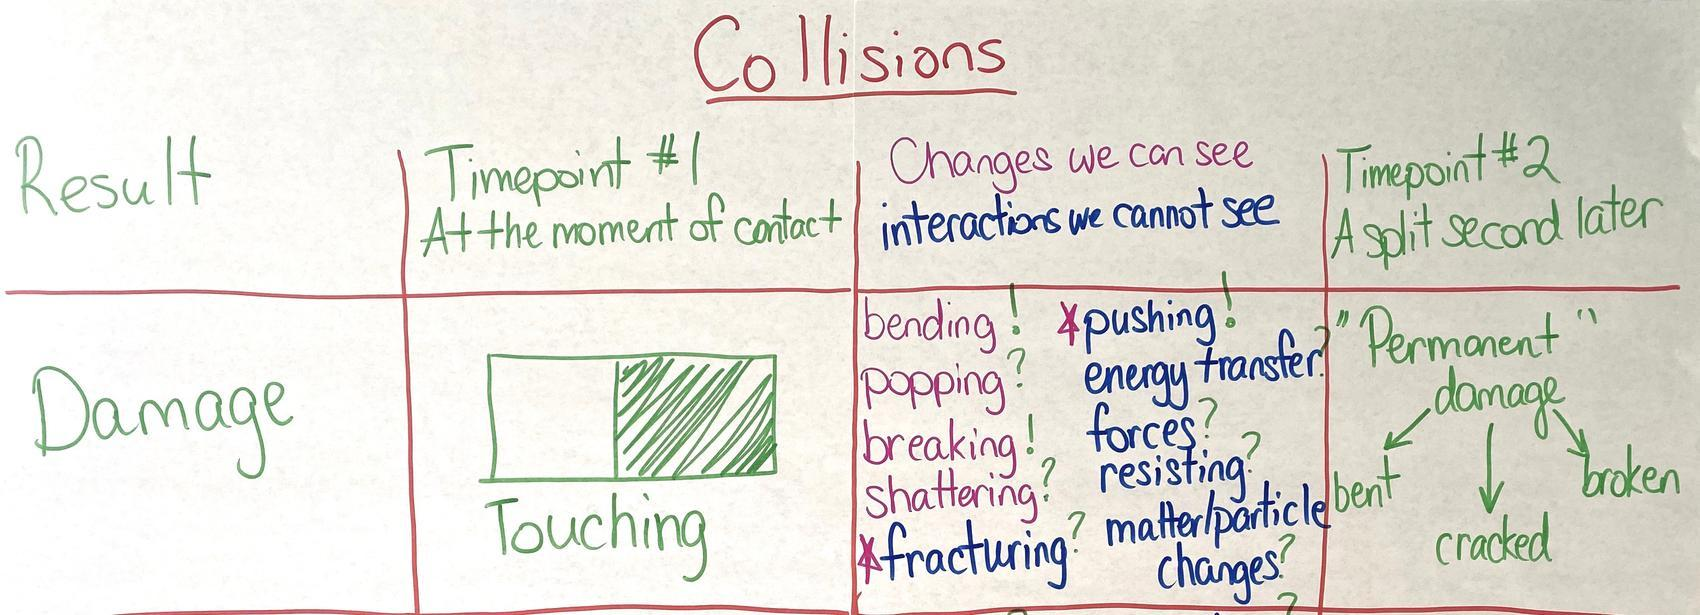 Collisions
Result
Timepoint #1
At the moment of contact
Changes we can see
interactions we cannot see
Timepoint #2
A split second later
Damage
Touching
bending!
popping?
breaking!
shattering?
*fracturing?
*pushing!
energy transfer?
forces?
resisting?
matter/particle
changes?
"Permanent"
damage
bent
cracked
broken